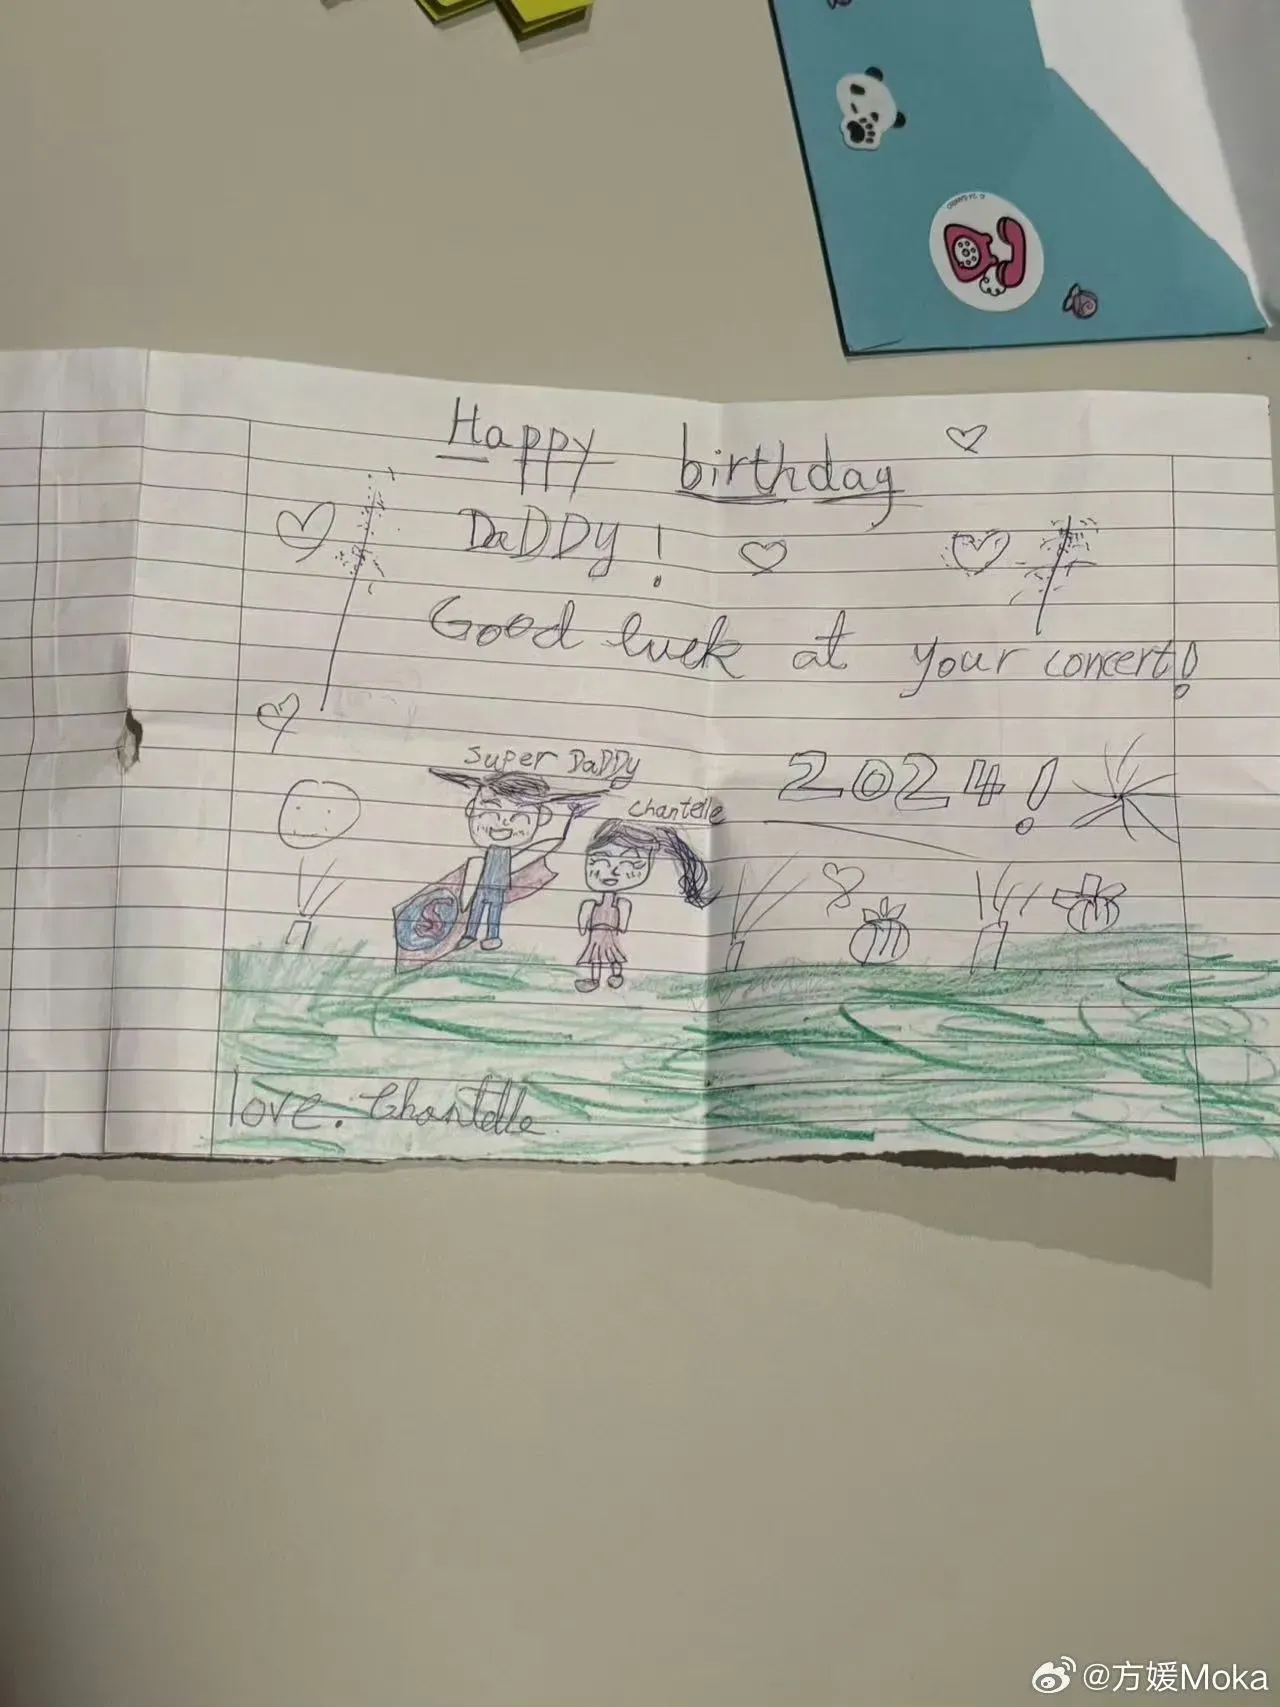 Happy birthday
DaDDy!
Good luck at your concert!
Super DaDDy
Chantelle
2024!
S
love. Chantelle
@方媛Moka